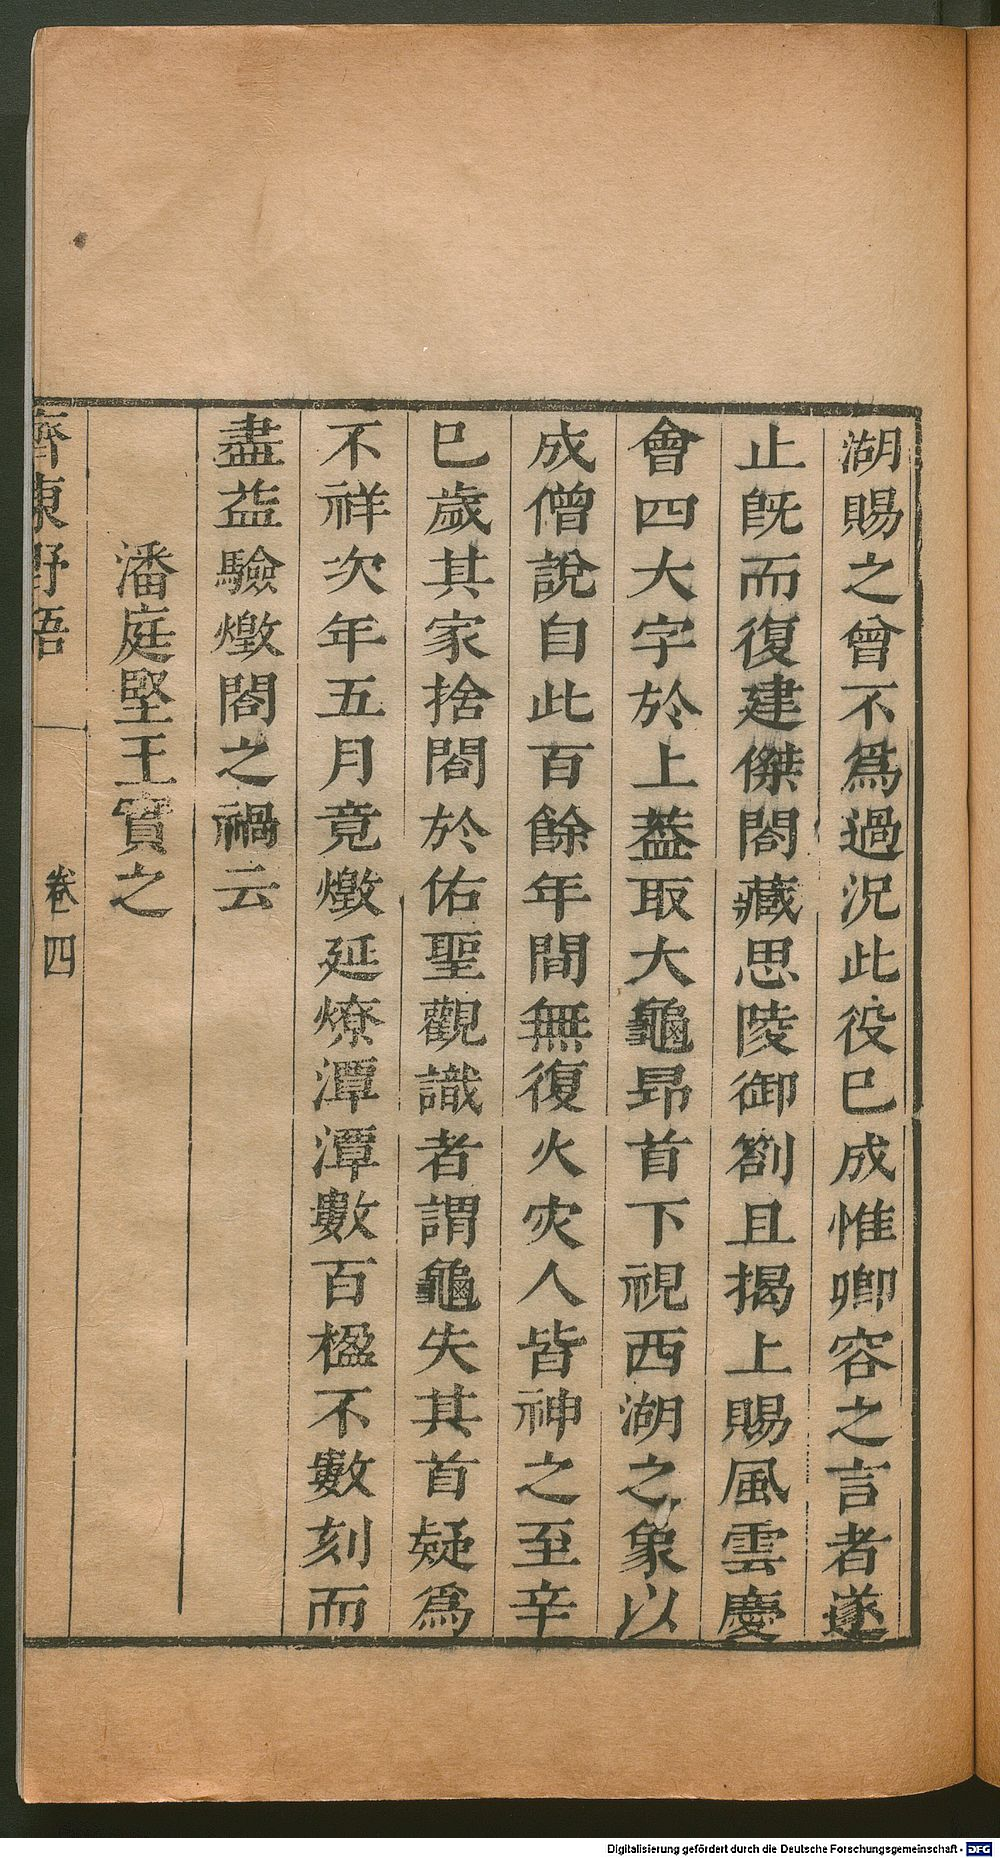 湖賜之曾不爲過況此役已成惟卿容之言者遂
止旣而復建傑閣藏思陵御劄且揭上賜風雲慶
會四大字於上葢取大龜昂首下視西湖之象以
成僧說自此百餘年間無復火灾人皆神之至辛
巳歲其家捨閣於佑聖觀識者謂龜失其首疑爲
不祥次年五月竟燬延燎潭潭數百楹不數刻而
盡益驗燬閣之禍云
潘庭堅王實之
齊東野語
卷四
Digitalisierung gefördert durch die Deutsche Forschungsgemeinschaft - DFG